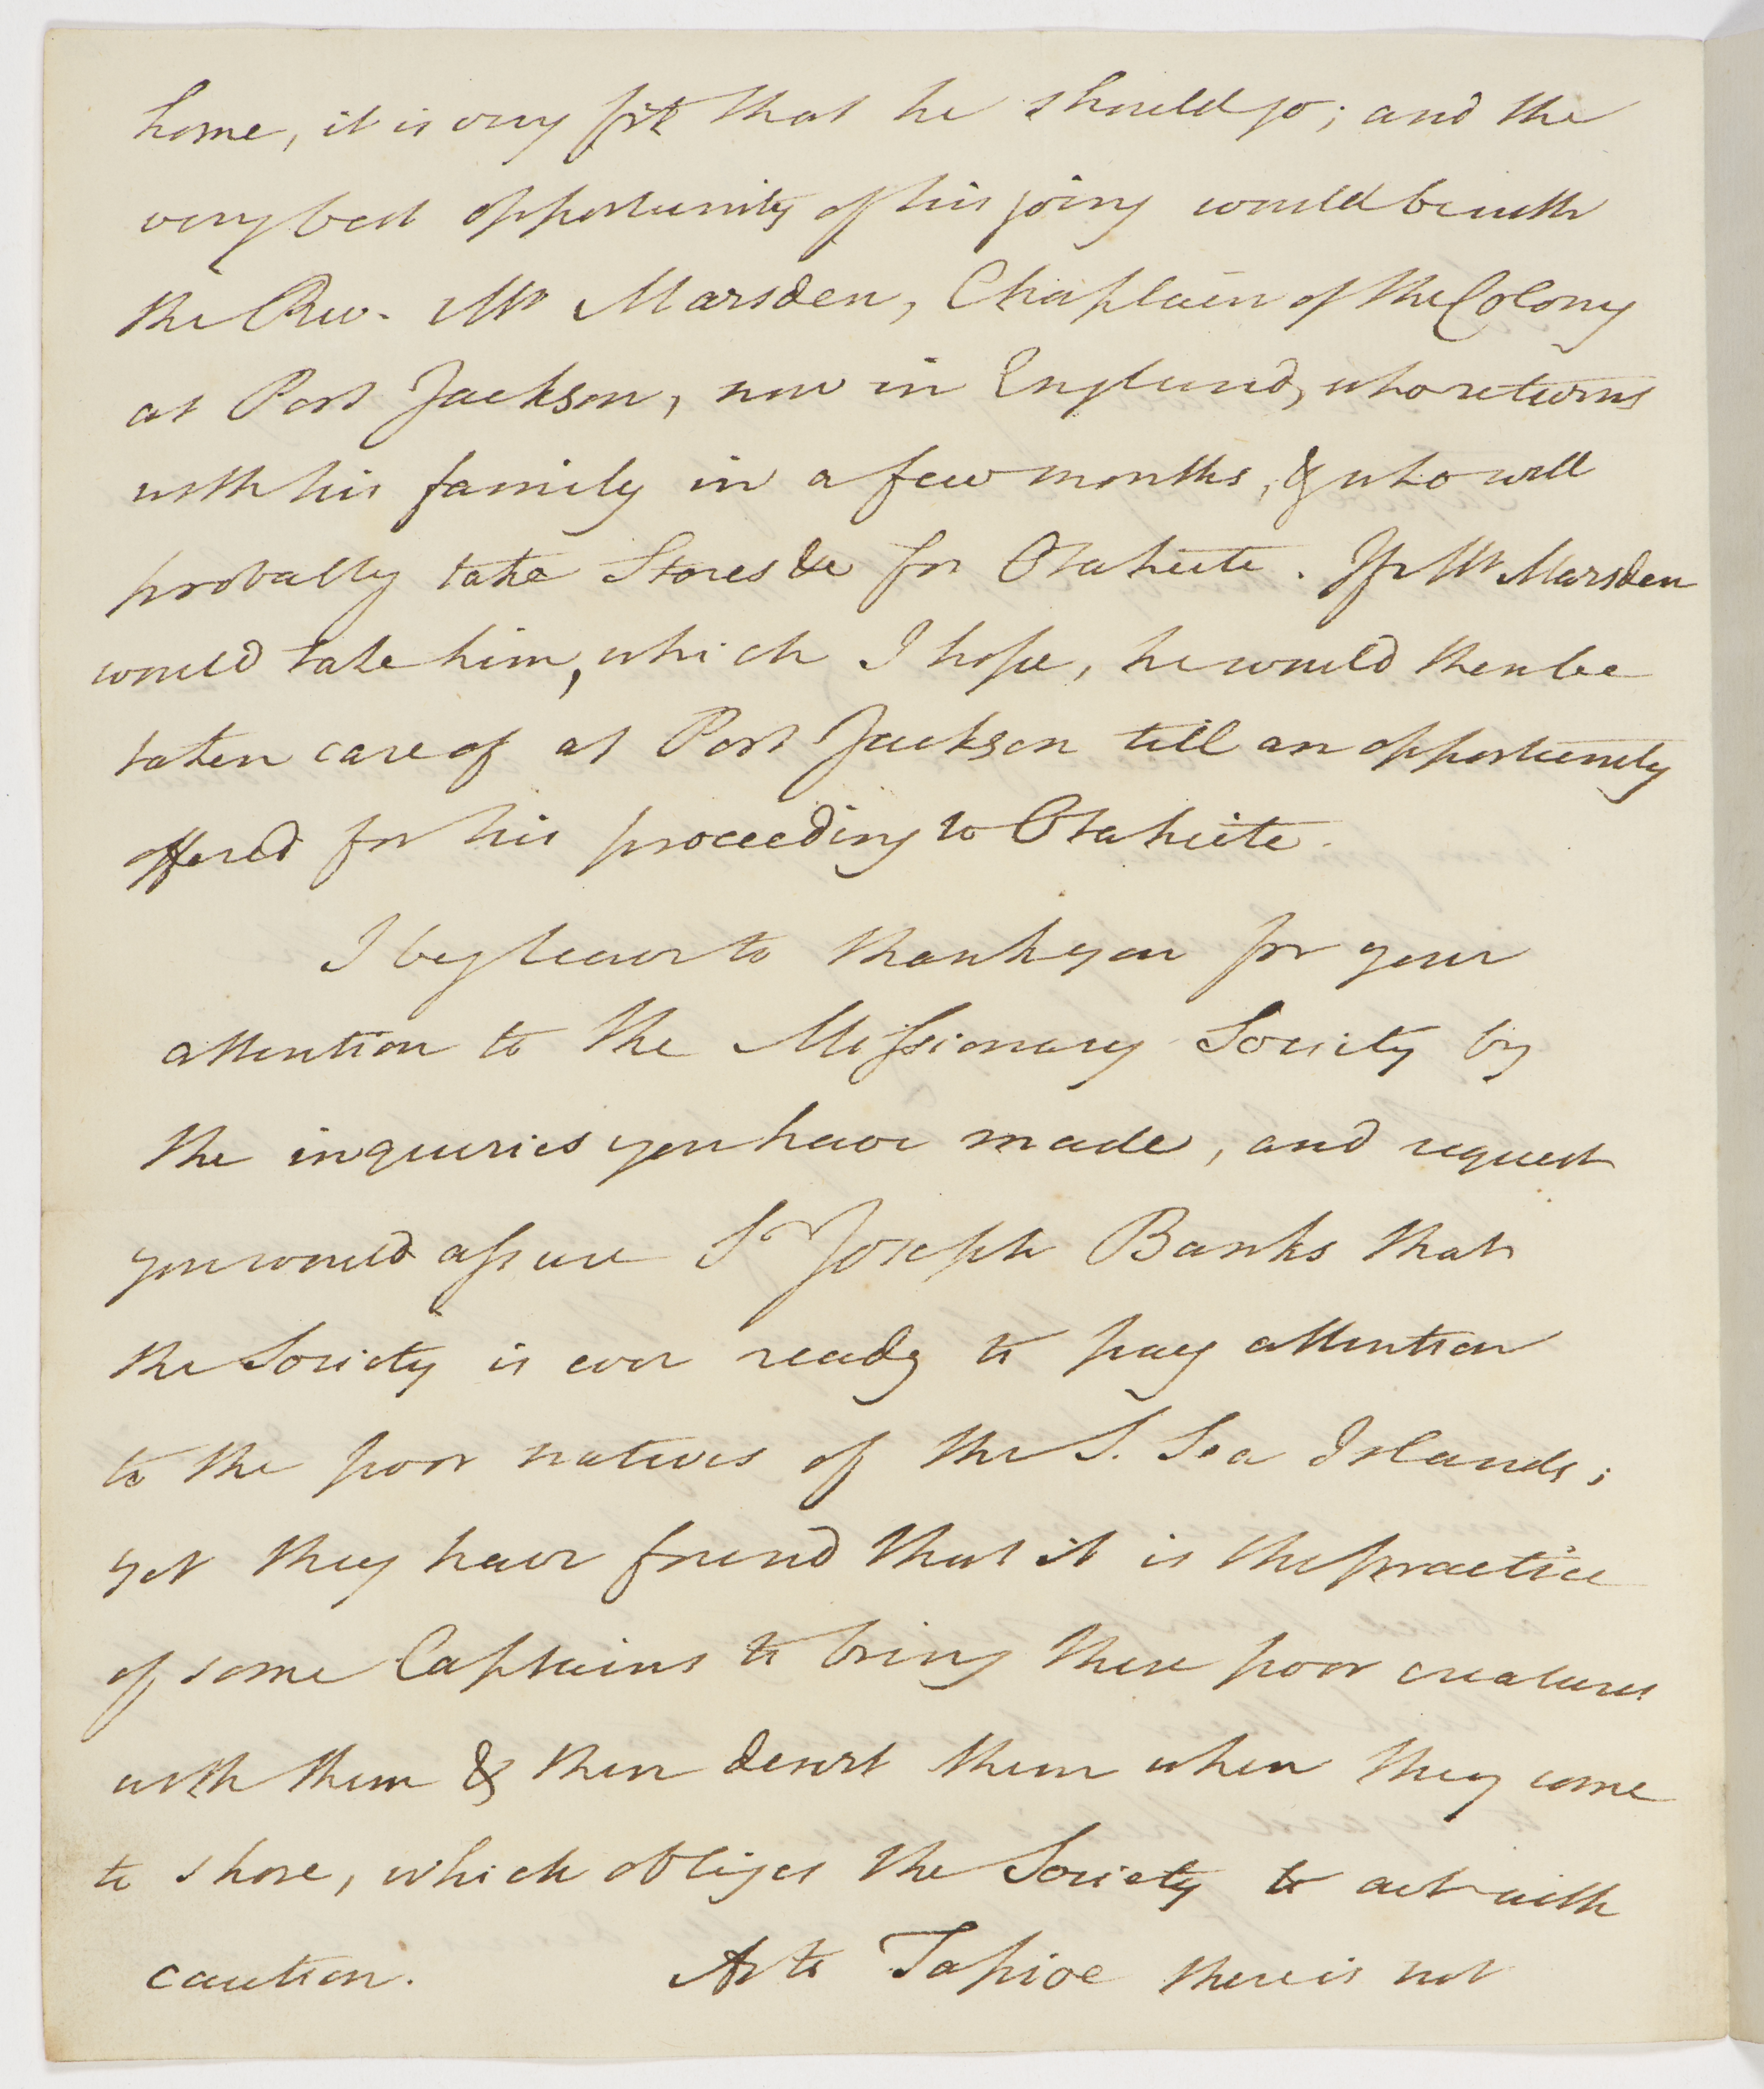 home, it is very fit that he should go; and the
very best opportunity of his going would be with
the Rev. Mr Marsden, Chaplain of the Colony
at Port Jackson, now in England, who returns
with his family in a few months, & who will
probably take Stores &c for Otaheite. If Mr Marsden
would take him, which I hope, he would then be
taken care of at Port Jackson till an opportunity
offered for his proceeding to Otaheite.
I beg leave to thank you for your
attention to the Missionary Society by
the inquiries you have made, and request
you would assure Sr Joseph Banks that
the Society is ever ready to pay attention
to the poor natives of the S. Sea Islands;
yet they have found that it is the practice
of some Captains to bring these poor creatures
with them & then desert them when they come
to shore, which obliges the Society to act with
caution. As to Tapioe there is not